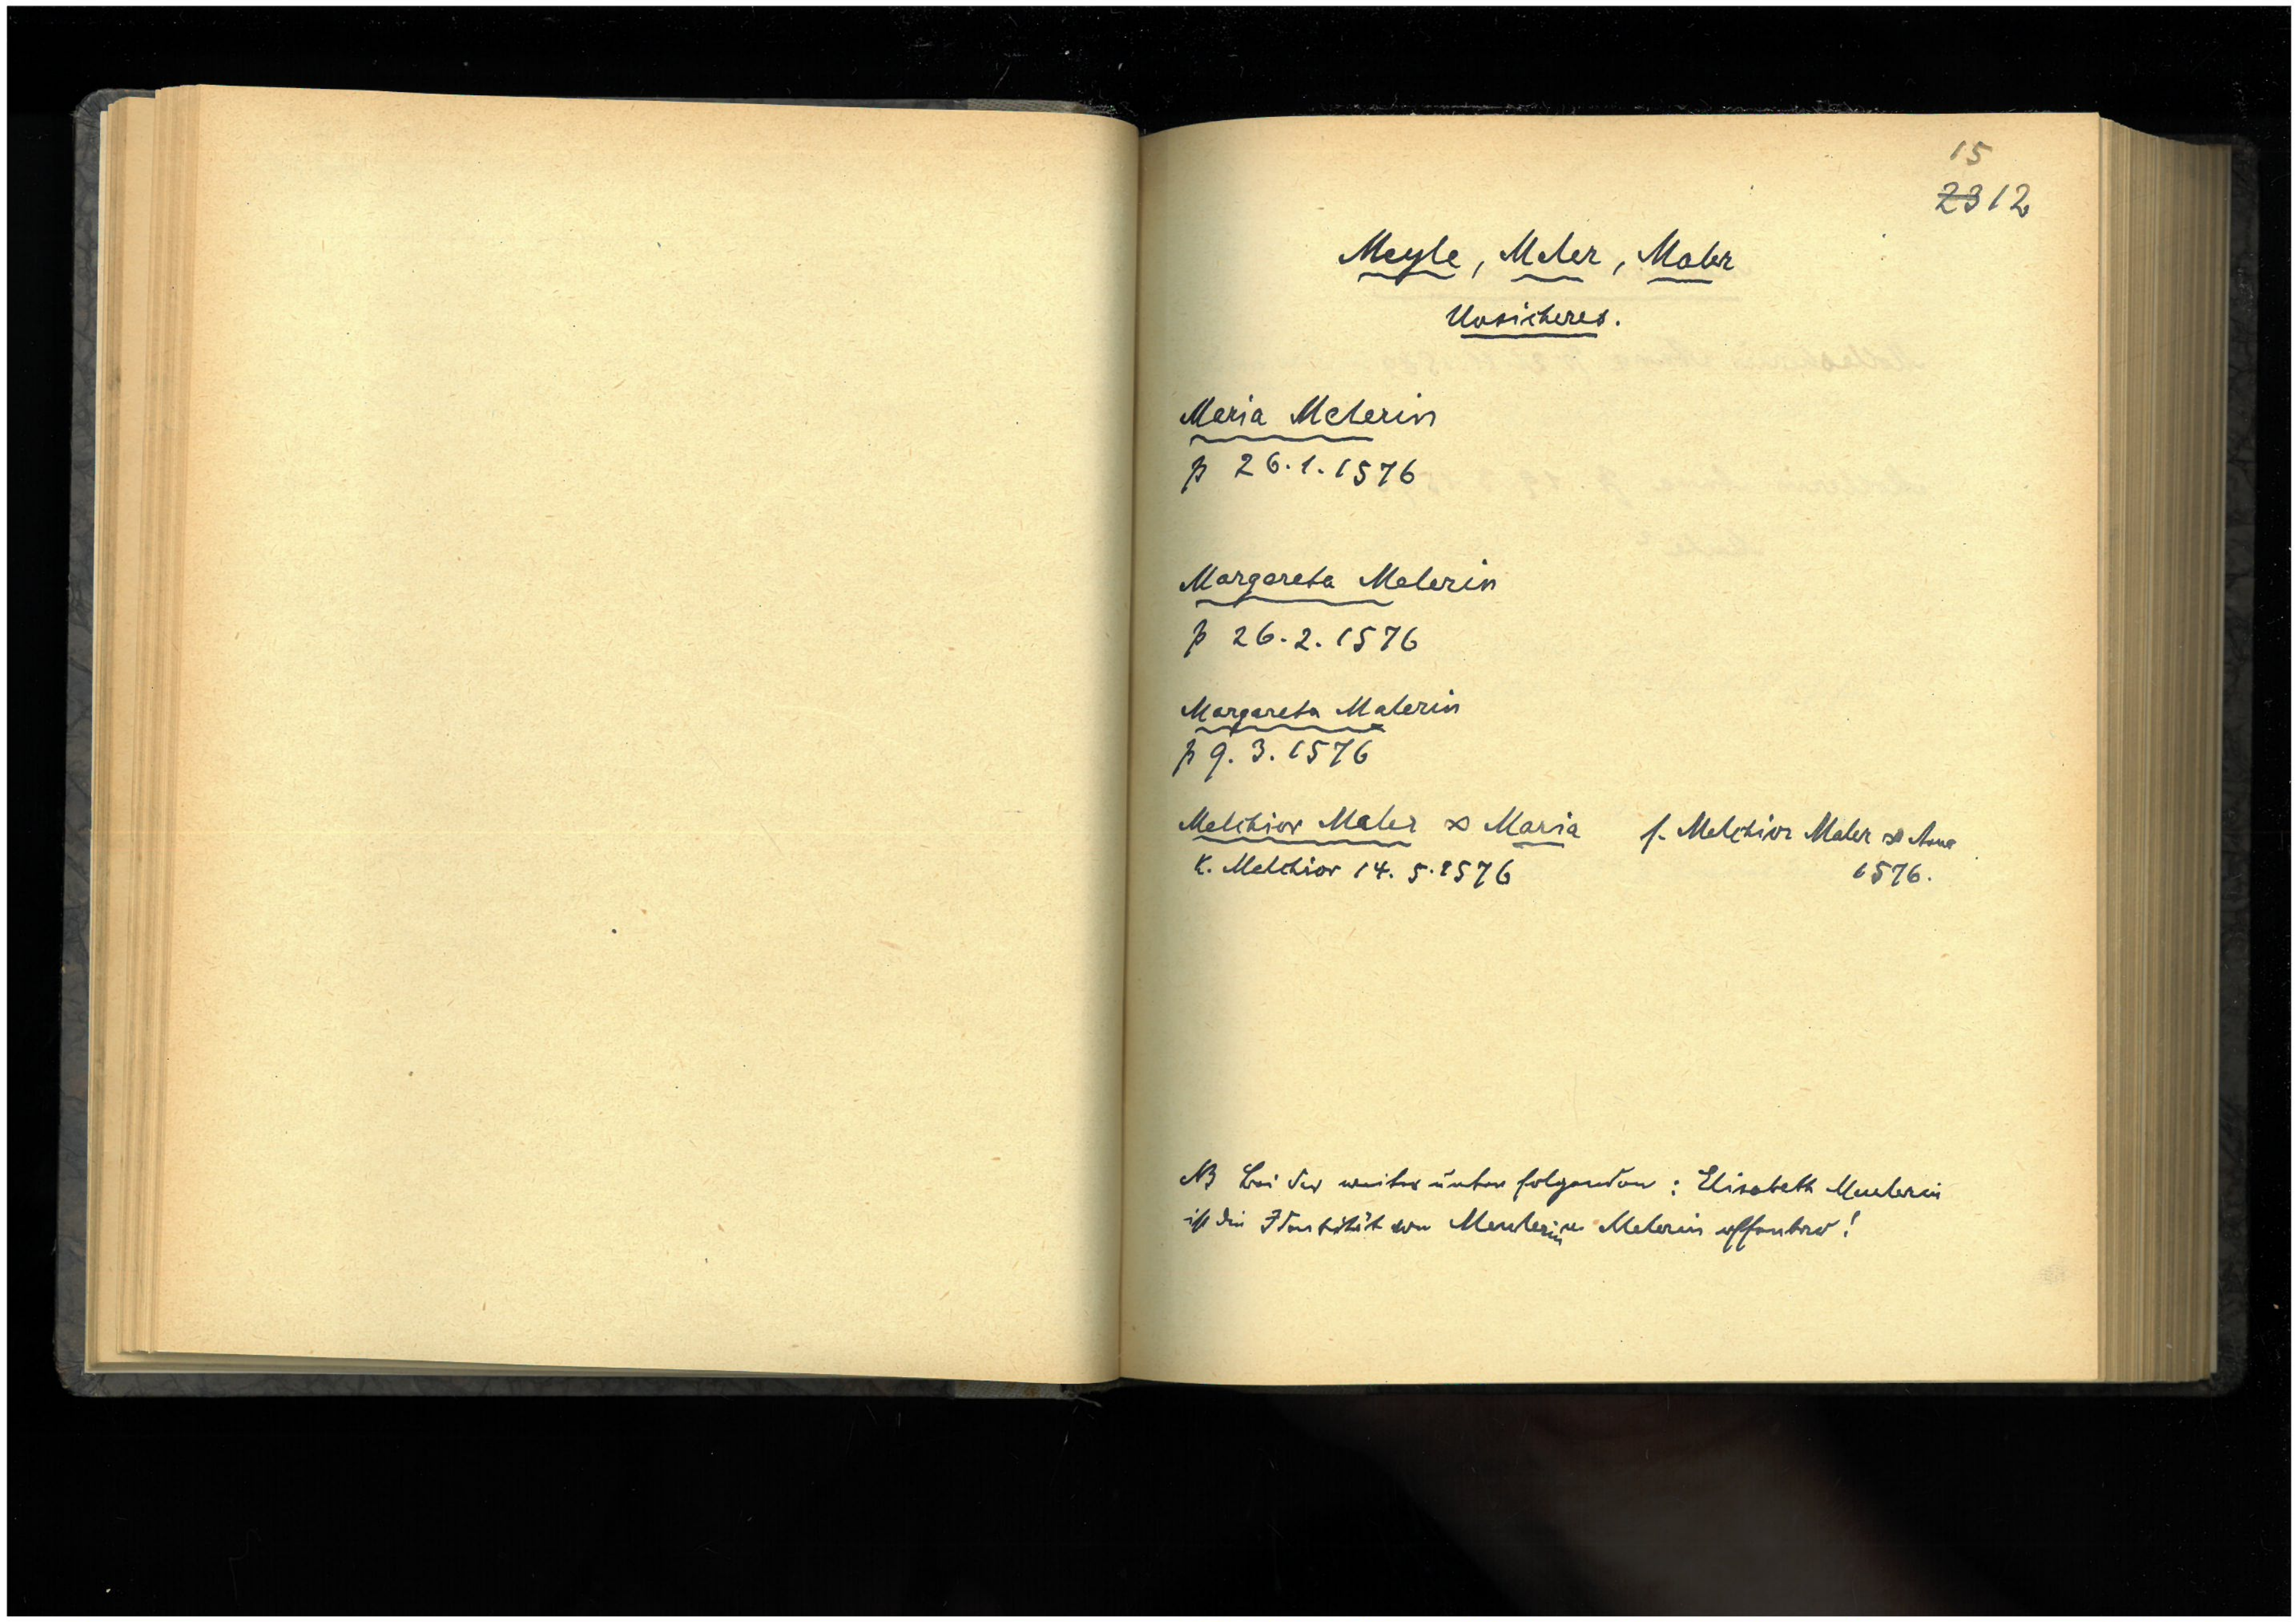 15
23 12
Meyle, Meler, Maler
Unsicheres.
Maria Melerin
p 26.1.1576
Margareta Melerin
p 26.2.1576
Margareta Malerin
p 9.3.1576
Melchior Maler ∞ Maria f. Melchior Maler ∞ Anna
K. Melchior 14.5.1576 1576.
NB Bei der weiter unten folgenden: Elisabeth Meulerin
ist die Identität von Meulerin Melerin offenbar!